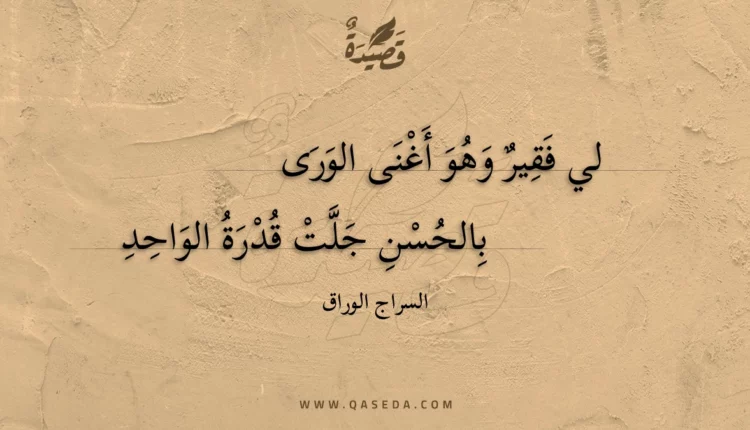 قَصِيدَةٌ
لي فَقِيرٌ وَهُوَ أَغْنَى الوَرَى
بِالحُسْنِ جَلَّتْ قُدْرَةُ الوَاحِدِ
السراج الوراق
WWW.QASEDA.COM